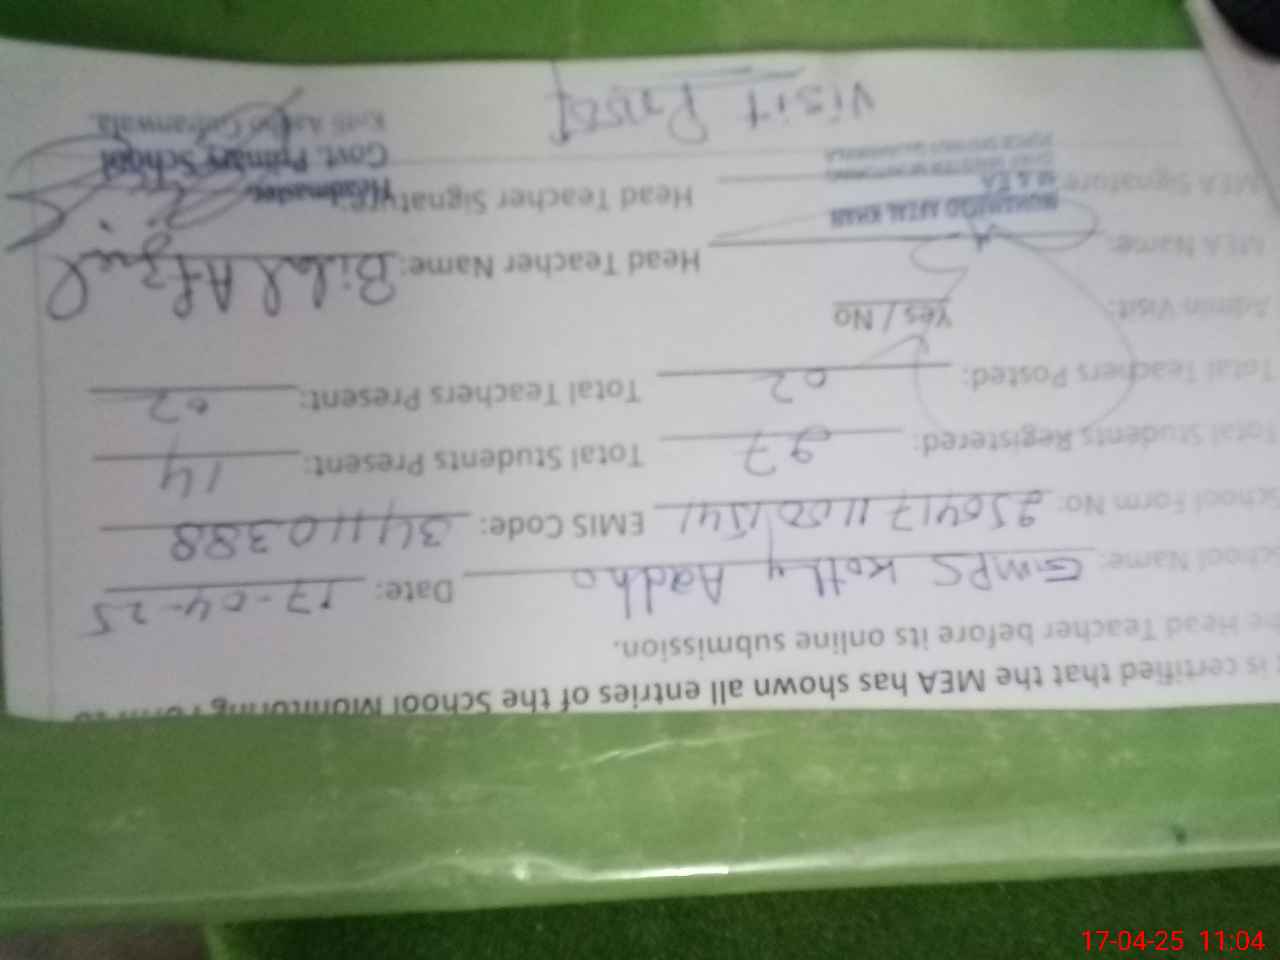 is certified that the MEA has shown all entries of the School Monitoring Form to
he Head Teacher before its online submission.
School Name: GMPS Kotly Aadho Date: 17-04-25
School Form No: 25041711001541 EMIS Code: 34110388
Total Students Registered: 27 Total Students Present: 14
Total Teachers Posted: 02 Total Teachers Present: 02
Admin Visit: Yes / No
MEA Name: Head Teacher Name: Bilal Afzal
MUHAMMAD AFZAL KHAN
M & EA
MEA Signature Head Teacher Signature:
Headmaster
Govt. Primary School
Visit Proof
17-04-25 11:04